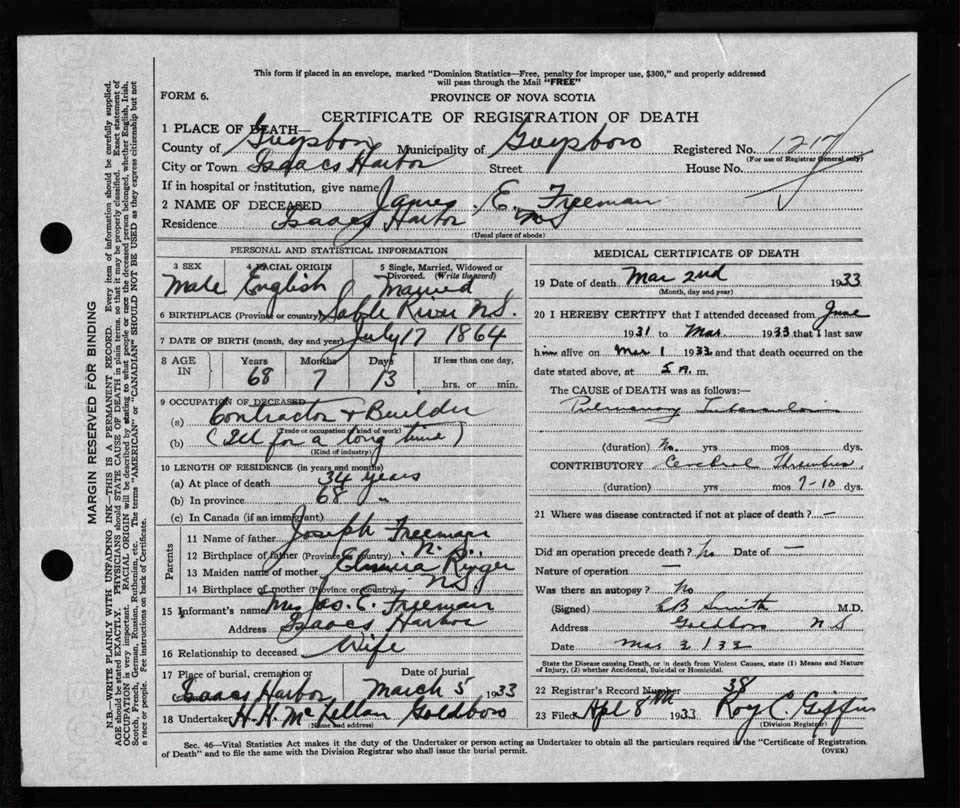 This form if placed in an envelope, marked "Dominion Statistics—Free, penalty for improper use, $300," and properly addressed
will pass through the Mail "FREE"
FORM 6.
PROVINCE OF NOVA SCOTIA
CERTIFICATE OF REGISTRATION OF DEATH
1 PLACE OF DEATH—
County of Guysboro Municipality of Guysboro Registered No. 1217
(For use of Registrar General only)
City or Town Isaacs Harbor Street House No.
If in hospital or institution, give name
2 NAME OF DECEASED James E. Freeman
Residence Isaacs Harbor NS
(Usual place of abode)
PERSONAL AND STATISTICAL INFORMATION
3 SEX 4 RACIAL ORIGIN 5 Single, Married, Widowed or Divorced. (Write the word)
Male English Married
6 BIRTHPLACE (Province or country) Sable River N.S.
7 DATE OF BIRTH (month, day and year) July 17 1864
8 AGE IN Years Months Days If less than one day,
68 7 13 hrs. or min.
9 OCCUPATION OF DECEASED
(a) Contractor & Builder
(Trade or occupation or kind of work)
(b) (Ill for a long time)
(Kind of industry)
10 LENGTH OF RESIDENCE (in years and months)
(a) At place of death 34 years
(b) In province 68 "
(c) In Canada (if an immigrant)
Parents
11 Name of father Joseph Freeman
12 Birthplace of father (Province or country) N.S.
13 Maiden name of mother Ringer
14 Birthplace of mother (Province or country) NS
15 Informant's name Mrs Jas. E. Freeman
Address Isaacs Harbor
16 Relationship to deceased Wife
17 Place of burial, cremation or Date of burial
Isaacs Harbor March 5 1933
18 Undertaker H. H. McLellan Goldboro
(Name and address)
MEDICAL CERTIFICATE OF DEATH
19 Date of death Mar 2nd 1933
(Month, day and year)
20 I HEREBY CERTIFY that I attended deceased from June
1931 to Mar 1933 and that I last saw
him alive on Mar 1 1933 and that death occurred on the
date stated above, at 5 A. m.
The CAUSE OF DEATH was as follows:—
Pulmonary Tuberculosis
(duration) yrs mos dys.
CONTRIBUTORY Cerebral Thrombus
(duration) yrs mos 7-10 dys.
21 Where was disease contracted if not at place of death? —
Did an operation precede death? No Date of —
Nature of operation —
Was there an autopsy? No
(Signed) Smith M.D.
Address Goldboro NS
Date Mar 2/33
State the Disease causing Death, or in death from Violent Causes, state (1) Means and Nature
of Injury, (2) whether Accidental, Suicidal or Homicidal.
22 Registrar's Record Number 38
23 Filed Apl 8th 1933 Roy C. Giffin
(Division Registrar)
Sec. 46—Vital Statistics Act makes it the duty of the Undertaker or person acting as Undertaker to obtain all the particulars required in the "Certificate of Registration
of Death" and to file the same with the Division Registrar who shall issue the burial permit. (OVER)
MARGIN RESERVED FOR BINDING
N.B.—WRITE PLAINLY WITH UNFADING INK—THIS IS A PERMANENT RECORD. Every item of information should be carefully supplied.
AGE should be stated EXACTLY. PHYSICIANS should STATE CAUSE OF DEATH in plain terms, so that it may be properly classified. Exact statement of
OCCUPATION is very important. RACIAL ORIGIN will be described by stating to what people or race the deceased person belonged, whether English, Irish,
Scotch, French, German, Russian, Ruthenian, etc. The terms "AMERICAN" or "CANADIAN" SHOULD NOT BE USED as they express citizenship but not
a race or people. Fee instructions on back of Certificate.